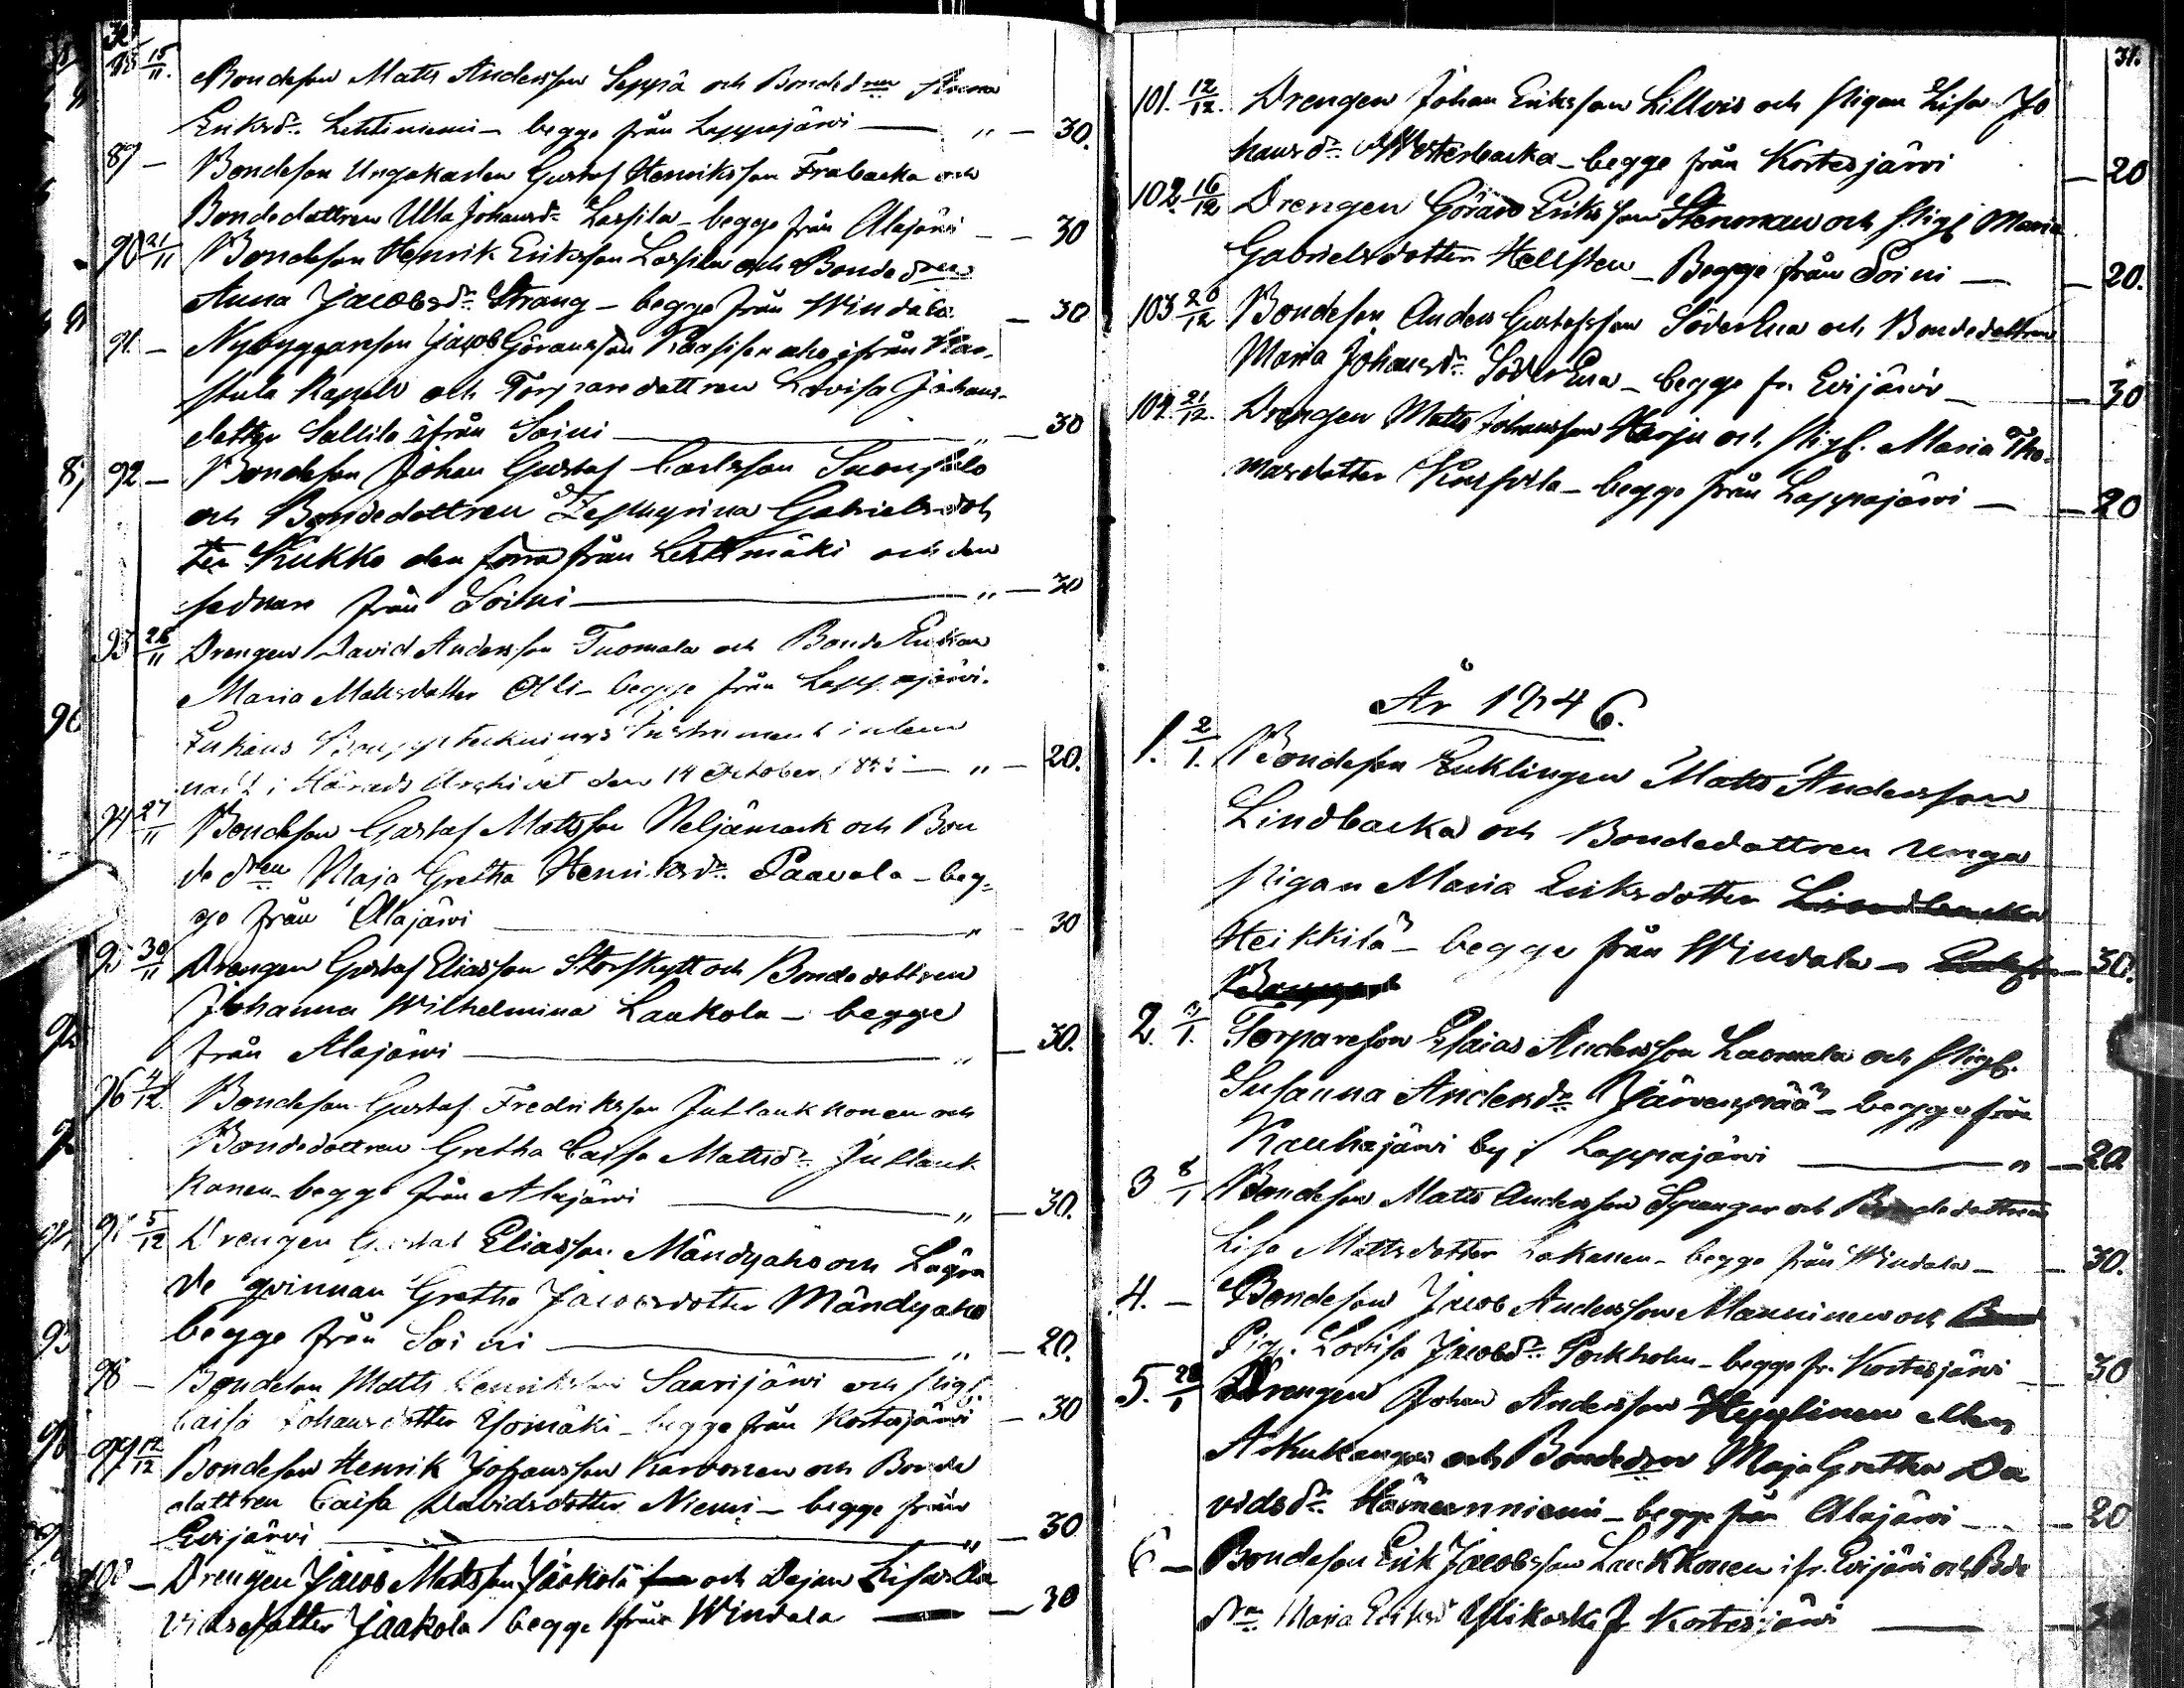 30
88 15/11. Bondeson Matts Andersson Seppä och Bondedren Anna
Eriksdr. Lehtiniemi - begge från Lappajärwi — " — 30.
89 — Bondeson Ungakarlen Gustaf Henriksson Frabacka och
Bondedottren Ulla Johansdr Lassila - begge från Alajärwi — 30
90 21/11 Bondeson Henrik Eriksson Lassila och Bondedren
Anna Jacobsdr. Strang - begge från Windala — 30
91. — Nybyggareson Jacob Göransson Paasisenaho ifrån Kar-
stula Kapell och Torparedottren Lovisa Johans-
dotter Sallila ifrån Soini — " — 30
92 — Bondeson Johan Gustaf Carlsson Suonsalo
och Bondedottren Zephyrina Gabrielsdot
ter Kukko den förra från Lehtimäki och den
sednare från Soini — " — 30
93 26/11 Drengen David Andersson Tuomala och Bonde Enkan
Maria Mattsdotter Olli - begge från Lappajärwi.
Enkans Boupptecknings Instrument inlem
nadt i Härads Archivet den 14 October — " — 20.
94 27/11 Bondeson Gustaf Mattsson Neljämark och Bon
de dren Maja Gretha Henriksdr. Paavola - beg-
ge från Alajärwi — " — 30
95 30/11 Drengen Gustaf Eliasson Storskytt och Bondedottren
Johanna Wilhelmina Laukola - begge
från Alajärwi — " — 30.
96 4/12. Bondeson Gustaf Fredriksson Jutlankkonen och
Bondedottren Gretha Caisa Mattsdr. Jutlank
konen - begge från Alajärwi — " — 30.
97 5/12 Drengen Gustaf Eliasson Mändyaho och Lägra
de qvinnan Gretha Jacobsdotter Mändyaho
begge från Soini — " — 20.
98 — Bondeson Matts Henriksson Saarijärwi och Pig.
Caisa Johansdotter Ylomäki - begge från Kortesjärwi — 30
99 12/12 Bondeson Henrik Johansson Karvonen och Bonde
dottren Caisa Davidsdotter Niemi - begge från
Evijärvi — " — 30
100 — Drengen Jacob Mattsson Jaakola och Dejan Lisa Da
vidsdotter Jaakola begge från Windala — 30
31.
101. 12/12. Drengen Johan Eriksson Lillvis och Pigan Lisa Jo
hansdr. Westerbacka - begge från Kortesjärvi — 20
102. 16/12 Drengen Göran Eriksson Stenman och Pig. Maria
Gabrielsdotter Hellsten - Begge från Soini — 20.
103 20/12 Bondeson Anders Gustafsson SöderEna och Bondedottren
Maria Johansdr. SöderEna - begge fr. Evijärvi — 30
104. 21/12. Drengen Matts Johansson Harju och Pig. Maria Tho-
masdotter Karfvila - begge från Lappajärvi — 20
År 1846.
1. 2/1. Bondeson Enklingen Matts Andersson
Lindbacka och Bondedottren unga
Pigan Maria Eriksdotter Lindbacka
Heikkilä - begge från Windala — 30.
2. 3/1. Torpareson Esaias Andersson Luomala och Pig.
Susanna Andersdr Järvenpää - begge från
Kauhajärwi by i Lappajärwi — " — 20
3 8/1 Bondeson Matts Andersson Spangar och Bondedottren
Lisa Mattsdotter Lakanen - begge från Windala — 30.
4. — Bondeson Jacob Andersson Manninen och
Pig. Lovisa Jacobsdr. Porkholm - begge fr. Kortesjärvi — 30
5. 20/1 Drengen Johan Andersson Hyytinen eller
Askukangas och Bondedren Maja Gretha Da
vidsdr. Hämeenniemi - begge från Alajärvi — 20
6 — Bondeson Erik Jacobsson Laukkonen ifr. Evijärvi och Bde
dr. Maria Eriksdr Ylikoski fr Kortesjärvi —